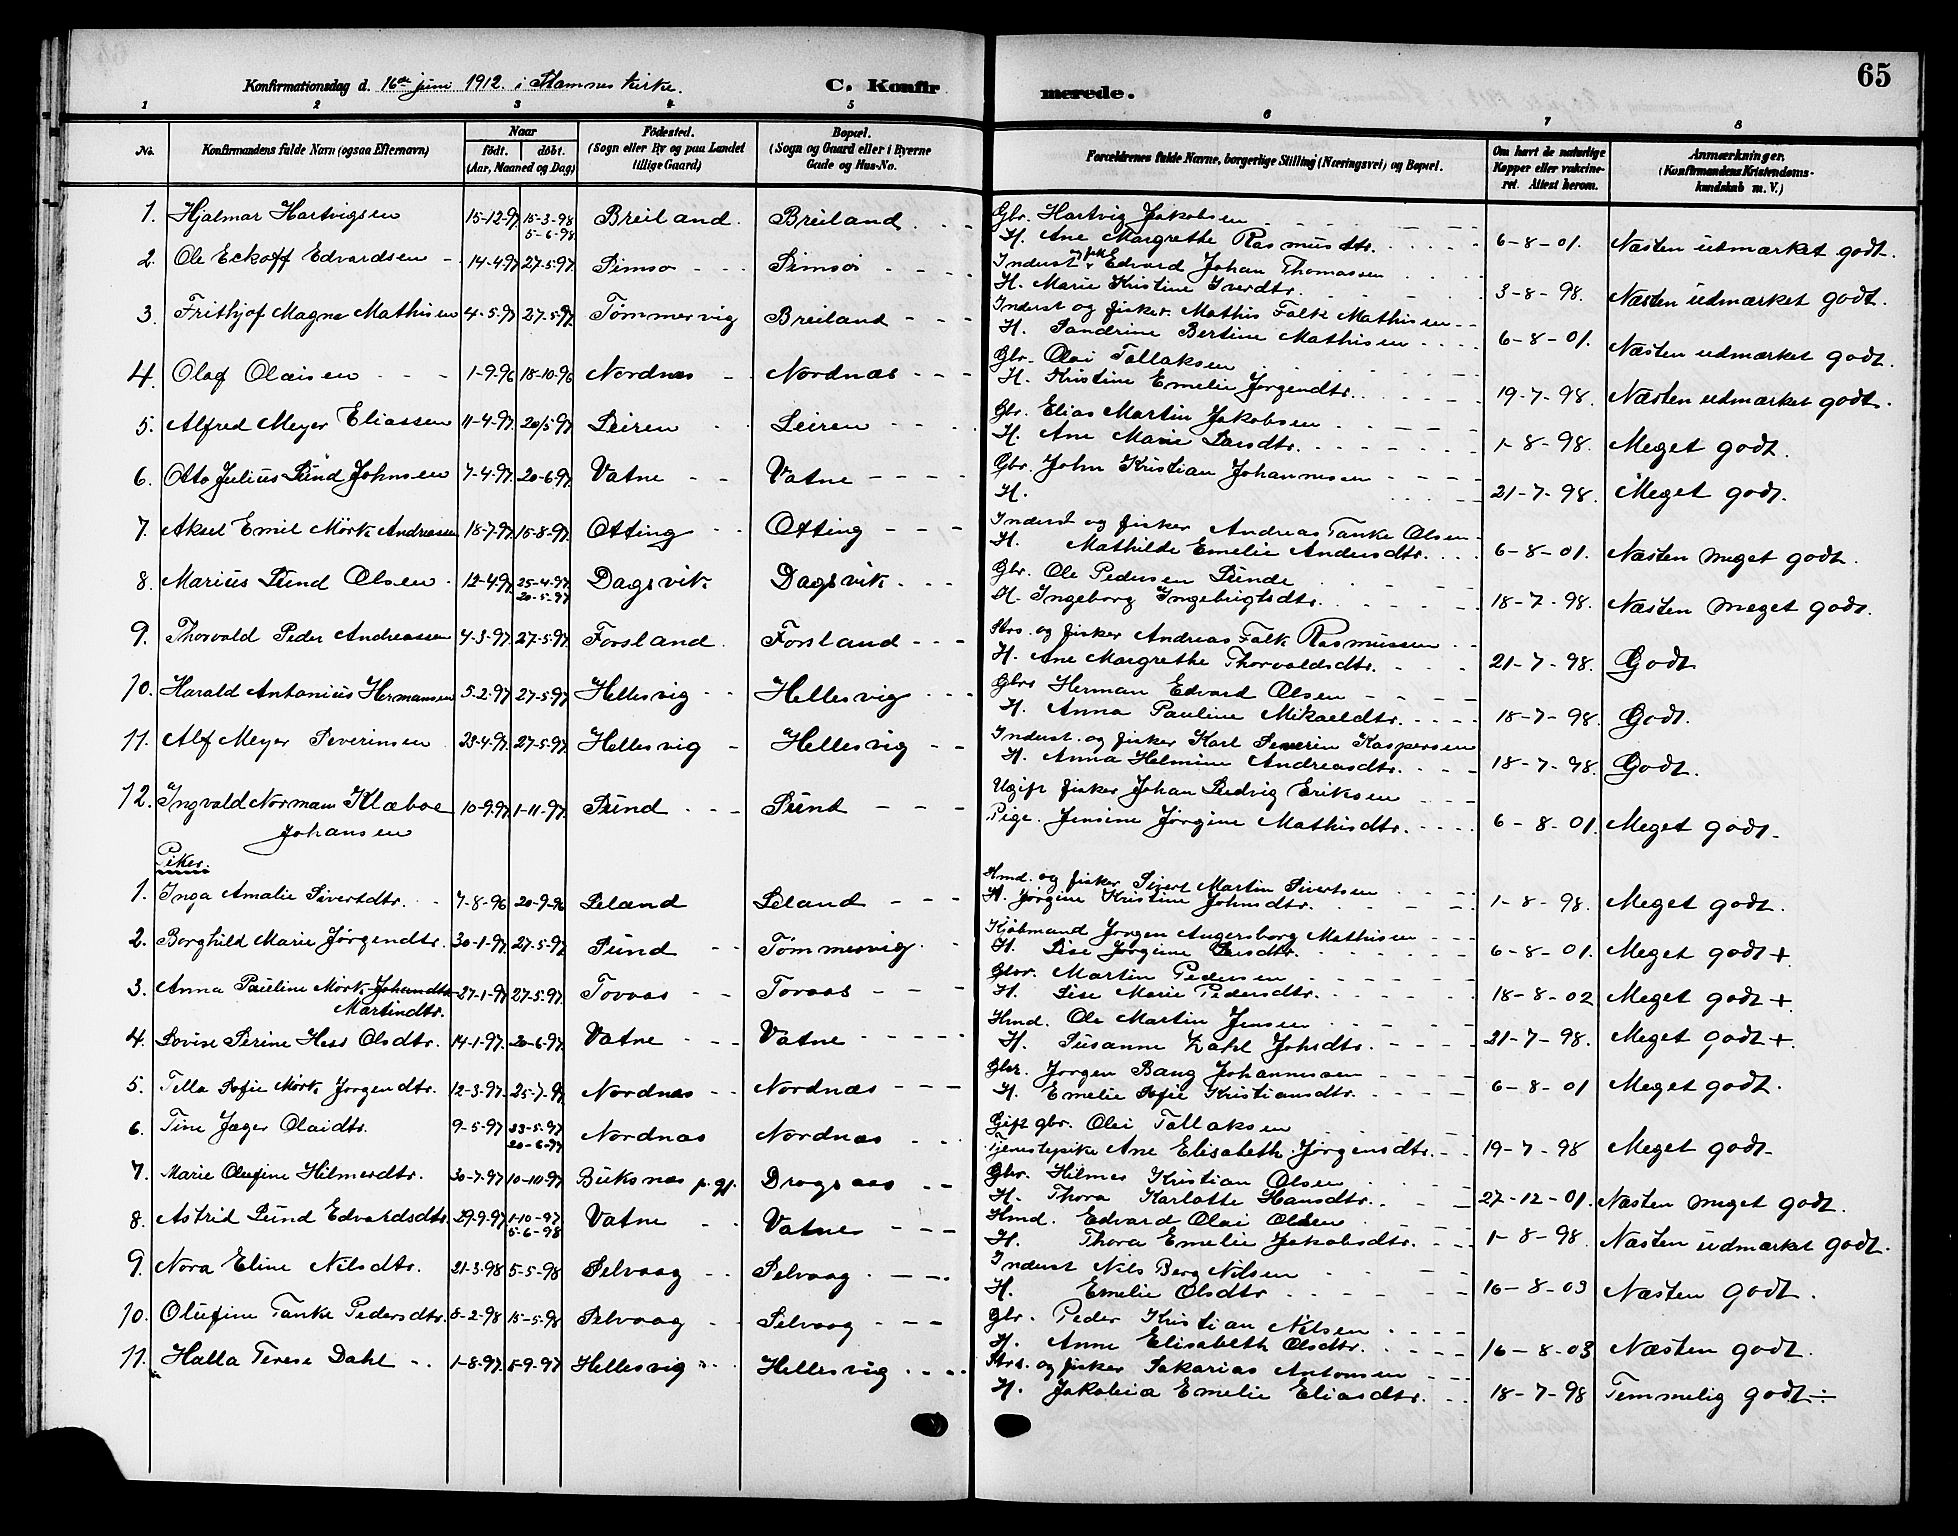 65
Konfirmationsdag d. 16de juni 1912. i Stamnes kirke. C. Konfir merede.
1 2 3 4 5 6 7 8
No. Konfirmandens fulde Navn (ogsaa Efternavn) Naar födt. döbt. (Aar, Maaned og Dag) Födested. (Sogn eller By og paa Landet tillige Gaard) Bopæl. (Sogn og Gaard eller i Byerne Gade og Hus-No. Forældrenes fulde Navne, borgerlige Stilling (Næringsvei) og Bopæl. Om havt de naturlige Kopper eller vakcineret. Attest herom. Anmærkninger. (Konfirmandens Kristendomskundskab m. V.)
1. Hjalmar Hartvigsen 15-12-97 15-3-98 5-6-98 Breiland. Breiland. Gbr. Hartvig Jakobsen
H. Ane Margrethe Rasmusdtr. 6-8-01. Næsten udmærket godt.
2. Ole Eckoff Edvardsen 14-4-97 27-5-97 Simsø Simsø Inderst og fisk. Edvard Johan Thomassen
H. Marie Kristine Iverdtr. 3-8-98. Næsten udmærket godt.
3. Frithjof Magne Mathisen 4-5-97 27-5-97 Tømmervig Breiland Inderst og fisker. Mathis Falk Mathisen
H. Sandrine Bertine Mathisen 6-8-01. Næsten udmærket godt.
4. Olaf Olaisen 1-9-96 18-10-96 Nordnæs Nordnæs Gbr. Olai Tollaksen
H. Kristine Emelie Jørgendtr. 19-7-98. Næsten udmærket godt.
5. Alfred Meyer Eliassen 11-4-97 20/5-97 Leiren Leiren Gbr. Elias Martin Jakobsen
H. Ane Marie Larsdtr. 1-8-98. Meget godt.
6. Otto Julius Lund Johnsen 7-4-97. 20-6-97 Vatne Vatne Gbr. John Kristian Johannesen
H. 21-7-98. Meget godt.
7. Aksel Emil Mörk Andreassen 18-7-97 15-8-97. Otting Otting Inderst og fisker Andreas Tanke Olsen
H. Mathilde Emelie Andersdtr. 6-8-01. Næsten meget godt.
8. Marius Lund Olsen 12-4-97. 25-4-97. 20-5-97 Dagsvik Dagsvik. Gbr. Ole Pedersen Lunde
H. Ingeborg Ingebrigtsdtr. 18-7-98. Næsten meget godt.
9. Thorvald Peder Andreassen 4-3-97. 27-5-97. Forsland. Forsland Strs. og fisker Andreas Falk Rasmussen
H. Ane Margrethe Thorvaldsdtr. 21-7-98. Godt
10. Harald Antonius Hermansen 5-2-97. 27-5-97 Hellesvig Hellesvig Gbr. Herman Edvard Olsen
H. Anna Pauline Mikaeldtr. 18-7-98. Godt.
11. Alf Meyer Severinsen 23-4-97. 27-5-97. Hellesvig Hellesvig Inderst. og fisker Karl Severin Kaspersen
H. Anna Helmine Andreasdtr. 18-7-98. Godt.
12. Ingvald Norman Klæboe 10-9-97. 1-11-97. Sund Sund Ugift fisker Johan Ludvig Eriksen
Johansen Pige. Jensine Jørgine Mathisdtr. 6-8-01. Meget godt.
Piker.
1. Inga Amalie Sivertdtr. 7-8-96 20-9-96 Leland Leland Hmd. og fisker Sivert Martin Sivertsen
H. Jørgine Kristine Johnsdtr. 1-8-98. Meget godt.
2. Borghild Marie Jørgendtr. 30-1-97. 27-5-97. Sund Tømmervig Kjøbmand Jørgen Angersborg Mathisen
H. Lise Jørgine Larsdtr. 6-8-01. Meget godt +
3. Anna Pauline Mörk Johandtr 27-1-97 27-5-97. Tovaas Tovaas Gbr. Martin Pedersen
Martindtr. H. Lise Marie Pedersdtr. 18-8-02 Meget godt +
4. Lovise Perine Hess Olsdtr. 14-1-97. 20-6-97 Vatne Vatne Hmd. Ole Martin Jensen
H. Susanne Zahl Johsdtr. 21-7-98. Meget godt +.
5. Tella Sofie Mörk Jørgendtr. 12-3-97. 25-7-97 Nordnæs Nordnæs Gbr. Jørgen Bang Johannesen
H. Emelie Sofie Kristiansdtr. 6-8-01 Meget godt.
6. Tine Jæger Olaidtr. 9-5-97 23-5-97 20-6-97 Nordnæs Nordnæs Gift gbr. Olai Tollaksen
Tjenestepike Ane Elisabeth Jørgensdtr. 19-7-98 Meget godt.
7. Marie Olufine Hilmerdtr. 30-7-97 10-10-97 Buksnæs p.gj. Dragsaas Gbr. Hilmer Kristian Olsen
H. Thora Karlotte Hansdtr. 27-12-01. Næsten meget godt.
8. Astrid Lund Edvardsdtr. 29-9-97 1-10-97 5-6-98 Vatne Vatne Hmd. Edvard Olai Olsen
H. Thora Emelie Jakobsdtr. 1-8-98. Næsten udmærket godt.
9. Nora Eline Nilsdtr. 21-3-98 5-5-98 Selvaag Selvaag Inderst Nils Berg Nilsen
H. Emelie Olsdtr 16-8-03 Næsten godt.
10. Olufine Tanke Pedersdtr. 8-2-98 15-5-98 Selvaag Selvaag Gbr. Peder Kristian Nilsen
H. Anne Elisabeth Olsdtr. 16-8-03 Næsten godt.
11. Halla Terese Dahl 1-8-97. 5-9-97. Hellesvig Hellesvig Strs. og fisker Sakarias Antonsen
H. Jakobia Emelie Eliasdtr. 18-7-98 Temmelig godt ÷